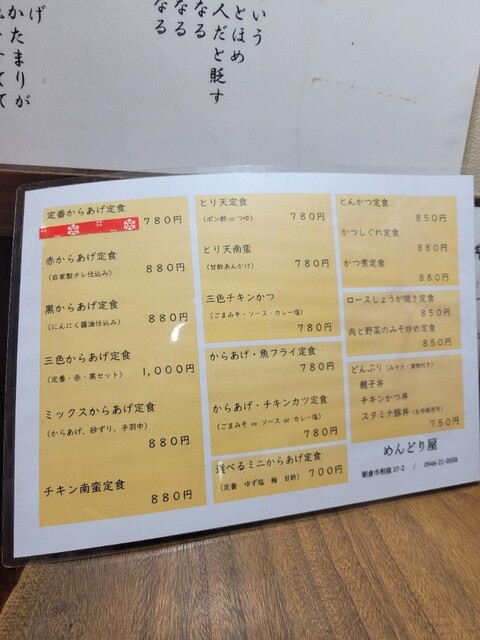 いう
とほめ
人だと貶す
なる
なる
なる
げ
かたまりが
定番からあげ定食
780円
赤からあげ定食
(自家製タレ仕込み)
880円
黒からあげ定食
(にんにく醤油仕込み)
880円
三色からあげ定食
(定番・赤・黒セット)
1,000円
ミックスからあげ定食
(からあげ、砂ずり、手羽中)
880円
チキン南蛮定食
880円
とり天定食
(ポン酢 or つゆ)
780円
とり天南蛮
(甘酢あんかけ)
780円
三色チキンかつ
(ごまみそ・ソース・カレー塩)
780円
からあげ・魚フライ定食
780円
からあげ・チキンカツ定食
(ごまみそ or ソース or カレー塩)
780円
選べるミニからあげ定食
(定番 ゆず塩 梅 甘酢)
700円
とんかつ定食
850円
かつしぐれ定食
880円
かつ煮定食
880円
ロースしょうが焼き定食
850円
肉と野菜のみそ炒め定食
850円
どんぶり (みそ汁・漬物付き)
親子丼
チキンかつ丼
スタミナ豚丼
750円
めんどり屋
朝倉市相窪 37-2 / 0946-21-0558